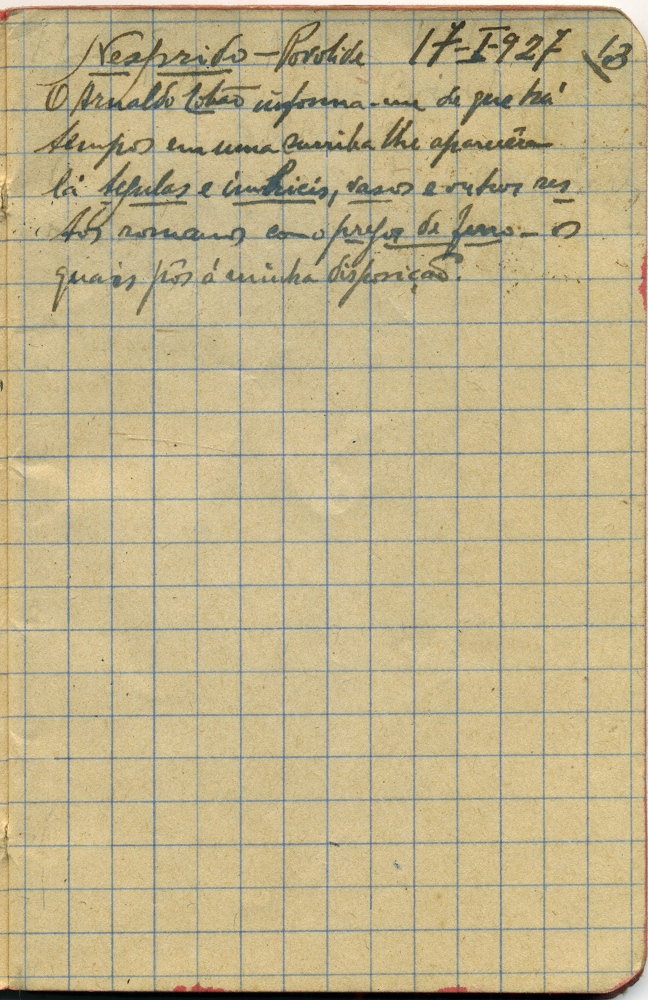 Nesprido – Povolide 17-I-927 13
O Arnaldo Lobão informa-me de que há
tempos em uma surriba lhe aparecêra
lá tegulas e imbricis, vasos e outros res
tos romanos como pregos de ferro – os
quais pôs á minha disposição.